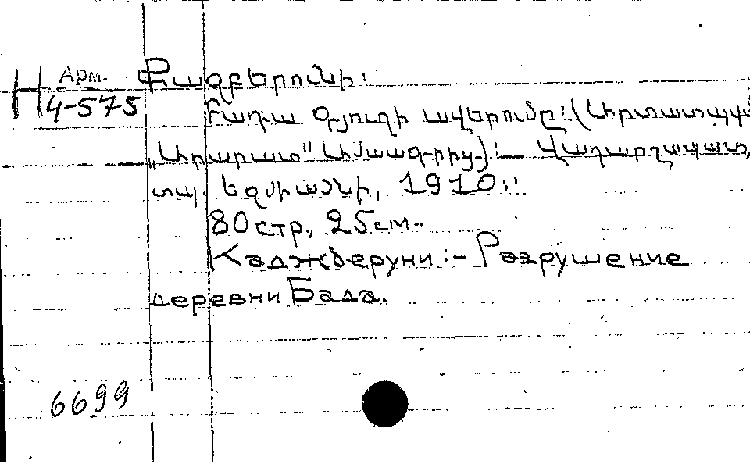 Арм. Քաջբերունի։
Н 4-575
Բադա գյուղի ավերումը։ (Արտատպվ
„Արարատ" ամսագրից)։ — Վաղարշապատ,
տպ. Էջմիածնի, 1910։
80 стр, 25 см.
Каджберуни: - Разрушение
деревни Бада.
6699